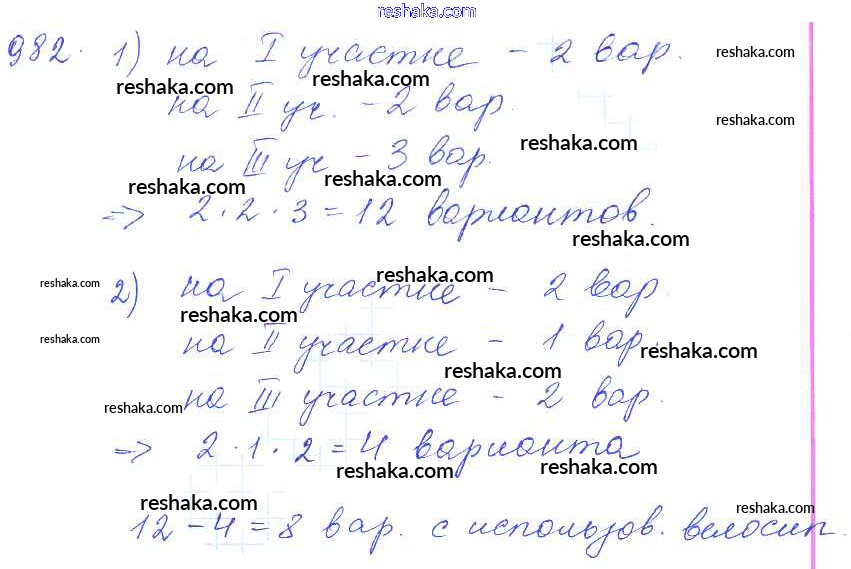 reshaka.com
982. 1) на I участке - 2 вар.
reshaka.com
reshaka.com
reshaka.com
на II уч. - 2 вар.
reshaka.com
reshaka.com
на III уч - 3 вар.
reshaka.com
reshaka.com
=> 2 · 2 · 3 = 12 вариантов.
reshaka.com
reshaka.com
reshaka.com
2) на I участке - 2 вар.
reshaka.com
на II участке - 1 вар.
reshaka.com
reshaka.com
reshaka.com
на III участке - 2 вар.
reshaka.com
=> 2 · 1 · 2 = 4 варианта
reshaka.com
reshaka.com
reshaka.com
reshaka.com
12 - 4 = 8 вар. с использов. велосип.